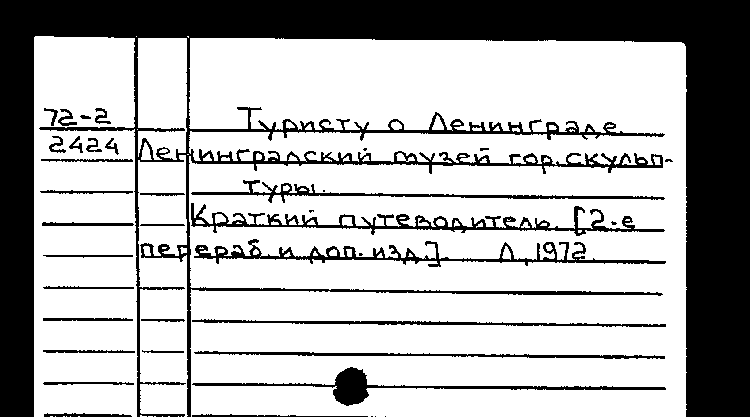 72-2 Туристу о Ленинграде.
2424 Ленинградский музей гор. скульп-
туры.
Краткий путеводитель. [2-е
перераб. и доп. изд.]. Л., 1972.